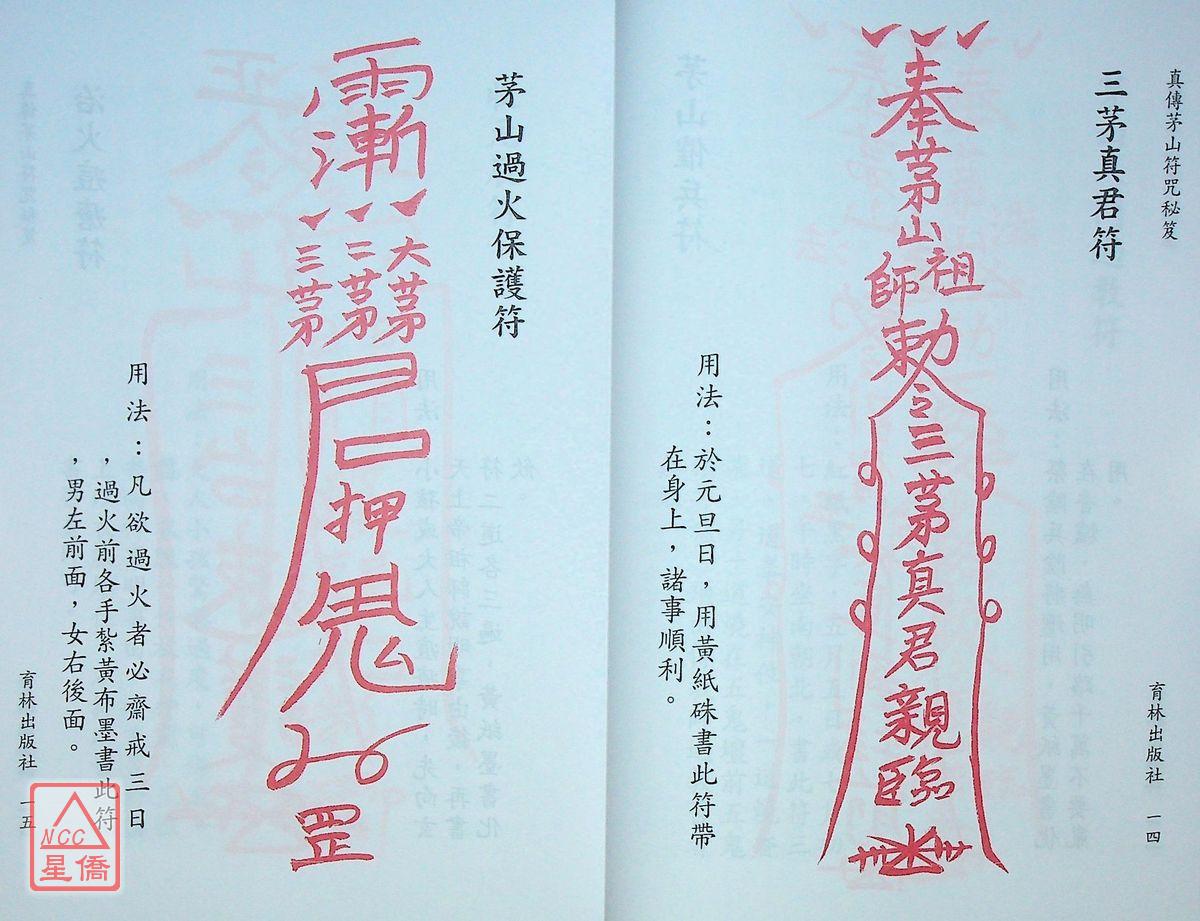 真傳茅山符咒秘笈
三茅真君符
奉茅山
祖師
勅令
三茅真君親臨
用法：於元旦日，用黃紙硃書此符帶
在身上，諸事順利。
育林出版社 一四
茅山過火保護符
大茅
二茅
三茅
押
罡
用法：凡欲過火者必齋戒三日
，過火前各手紮黃布墨書此符
，男左前面，女右後面。
育林出版社 一五
NCC
星僑